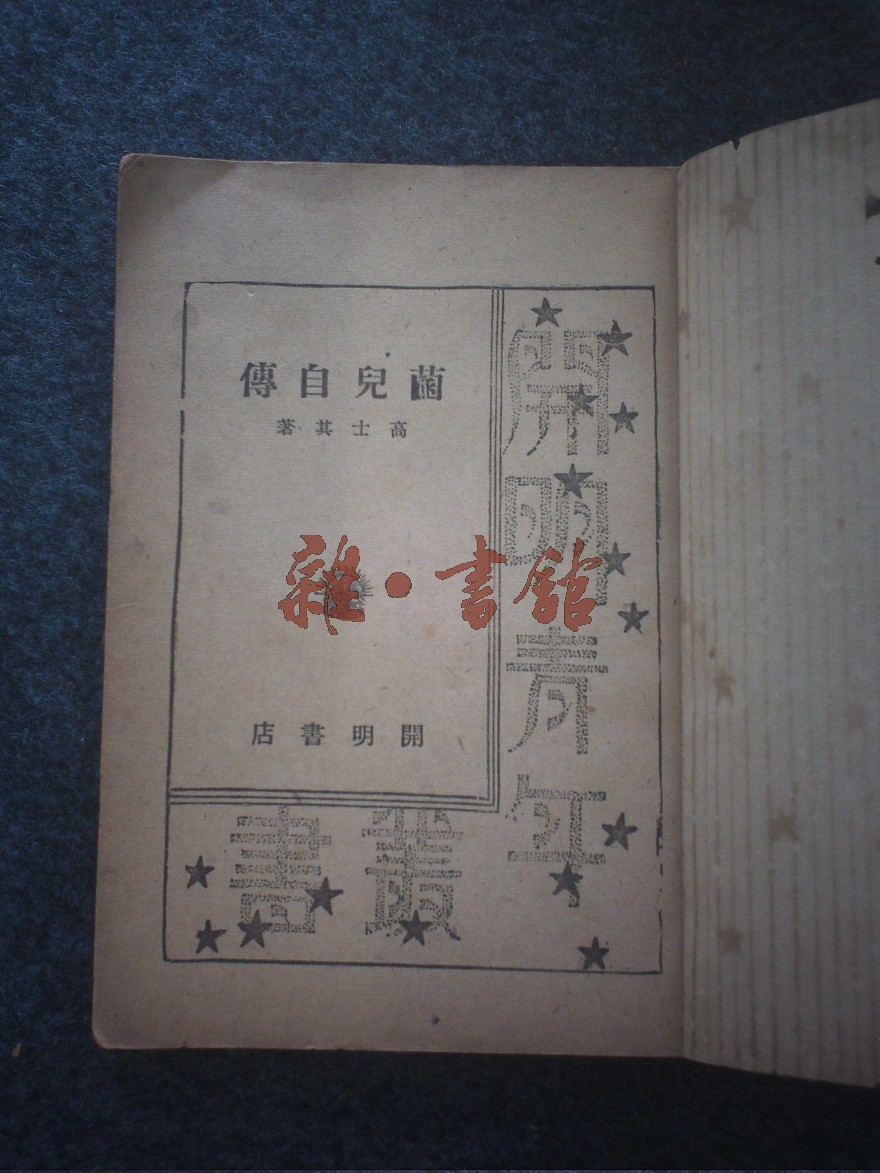 菌兒自傳
高士其著
開明書店
開明青年
叢書
雜·書館